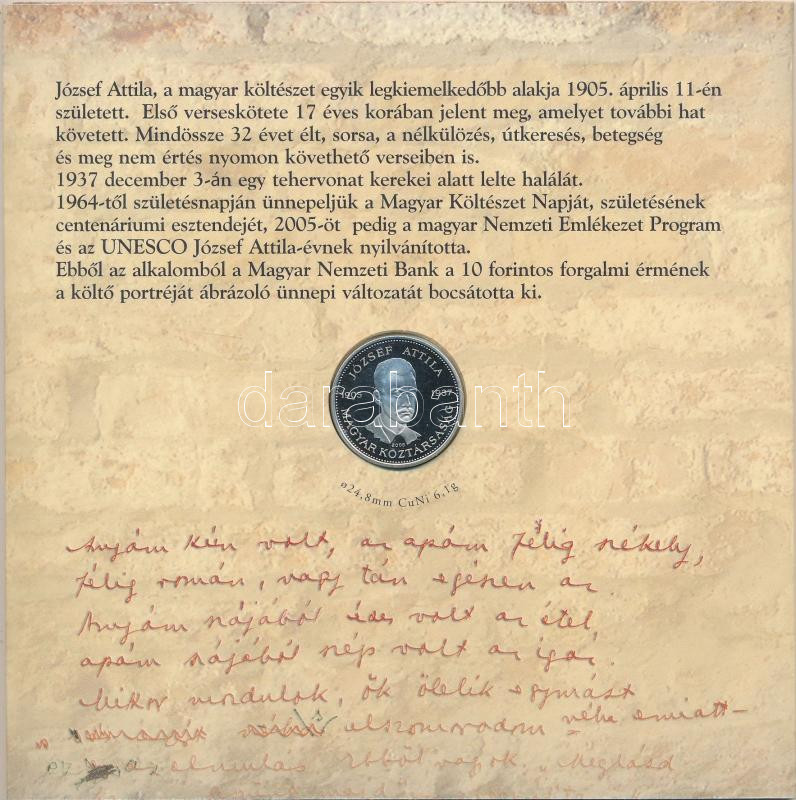 József Attila, a magyar költészet egyik legkiemelkedőbb alakja 1905. április 11-én
született. Első verseskötete 17 éves korában jelent meg, amelyet további hat
követett. Mindössze 32 évet élt, sorsa, a nélkülözés, útkeresés, betegség
és meg nem értés nyomon követhető verseiben is.
1937 december 3-án egy tehervonat kerekei alatt lelte halálát.
1964-től születésnapján ünnepeljük a Magyar Költészet Napját, születésének
centenáriumi esztendejét, 2005-öt pedig a magyar Nemzeti Emlékezet Program
és az UNESCO József Attila-évnek nyilvánította.
Ebből az alkalomból a Magyar Nemzeti Bank a 10 forintos forgalmi érmének
a költő portréját ábrázoló ünnepi változatát bocsátotta ki.
JÓZSEF ATTILA
1905 1937
darabanth
2005
MAGYAR KÖZTÁRSASÁG
ø24,8mm CuNi 6,1g
Anyám kún volt, az apám félig székely,
félig román, vagy tán egészen az.
Anyám szájából édes volt az étel,
apám szájából szép volt az igaz.
Mikor mozdulok, ők ölelik egymást
elszomorodom néha emiatt –
az elmulás. Ebből vagyok. Meglásd